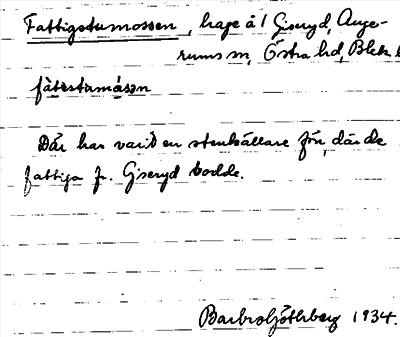 Fattigstumossen, hage å 1 Giseryd, Auge-
rums sn, Östra hd, Blek
fàtistumásən
Där har varit en stenkällare för, där de
fattiga fr. Giseryd bodde.
Barbro Göthberg 1934.